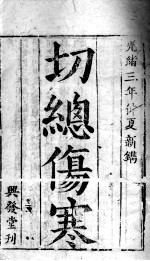 光緒三年仲夏新鐫
切總傷寒
興發堂刊